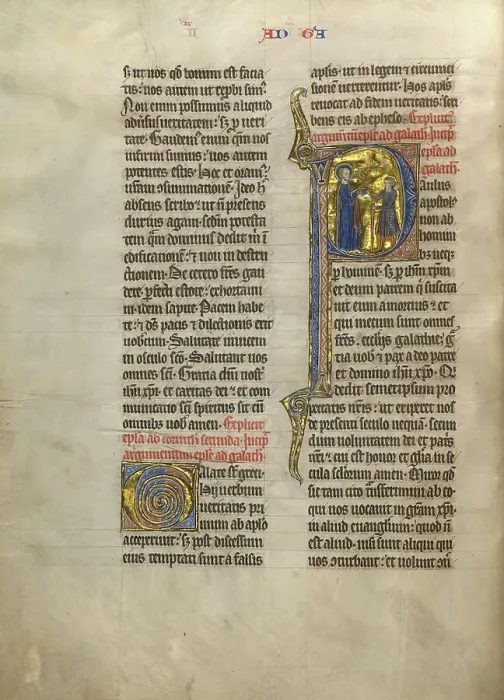 AD GA
s; ut uos qd bonum est facia
tis: nos autem ut repbi sim9.
Non enim possumus aliquid
adusus ueritatem: s; p ueri
tate. Gaudem9 enim qm nos
infirmi sumus: uos autem
potentes estis. Hoc et oram9:
ufam 9summationem. Ideo h
absens scribo: ut n presens
durius agam. scdm potesta
tem qm dominus dedit m i
edificatione: & non in destru
ctionem. De cetero fres gau
dete. pfecti estote. exhortami
ni. idem sapite. Pacem habe
te: & ds pacis & dilectionis erit
uobcum. Salutate inuicem
in osculo sco. Salutant uos
omnes sci. Gratia dni nosti
ihu xpi. et caritas dei & com
municatio sci spiritus sit cu
omnibz uobis amen. Explicit
epla ad corinth secunda. Incip
argumentum eple ad galath.
Galate st greci.
Hij uerbum
ueritatis pri
mum ab aplo
acceperunt: s; post discessum
eius temptati sunt a falsis
aplis. ut in legem & circumci
sione uerterentur. Hos apls
reuocat ad fidem ueritatis: scri
bens eis ab epheso. Explicit
argumtm eple ad galath. Incip
epla ad
galath.
Paulus
apostols
non ab
homini
bz neq;
p homine. s; p ihm xpm
et deum patrem q suscita
uit eum a mortuis & et
qui mecum sunt omnes
fres. ecclijs galathie: g
tia uob & pax a deo patre
et domino ihu xpo. Qi
dedit semetipsum pro
peccatis nris: ut eriperet nos
de presenti seculo nequa. secun
dum uoluntatem dei & patis
nri: cui est honor et glia in se
cula sclorum amen. Miror qd
sic tam cito tnsferimini ab eo
qui uos uocauit in gram xpi.
in aliud euanglium: quod n
est aliud. nisi sunt aliqui qui
uos 9turbant: et uolunt